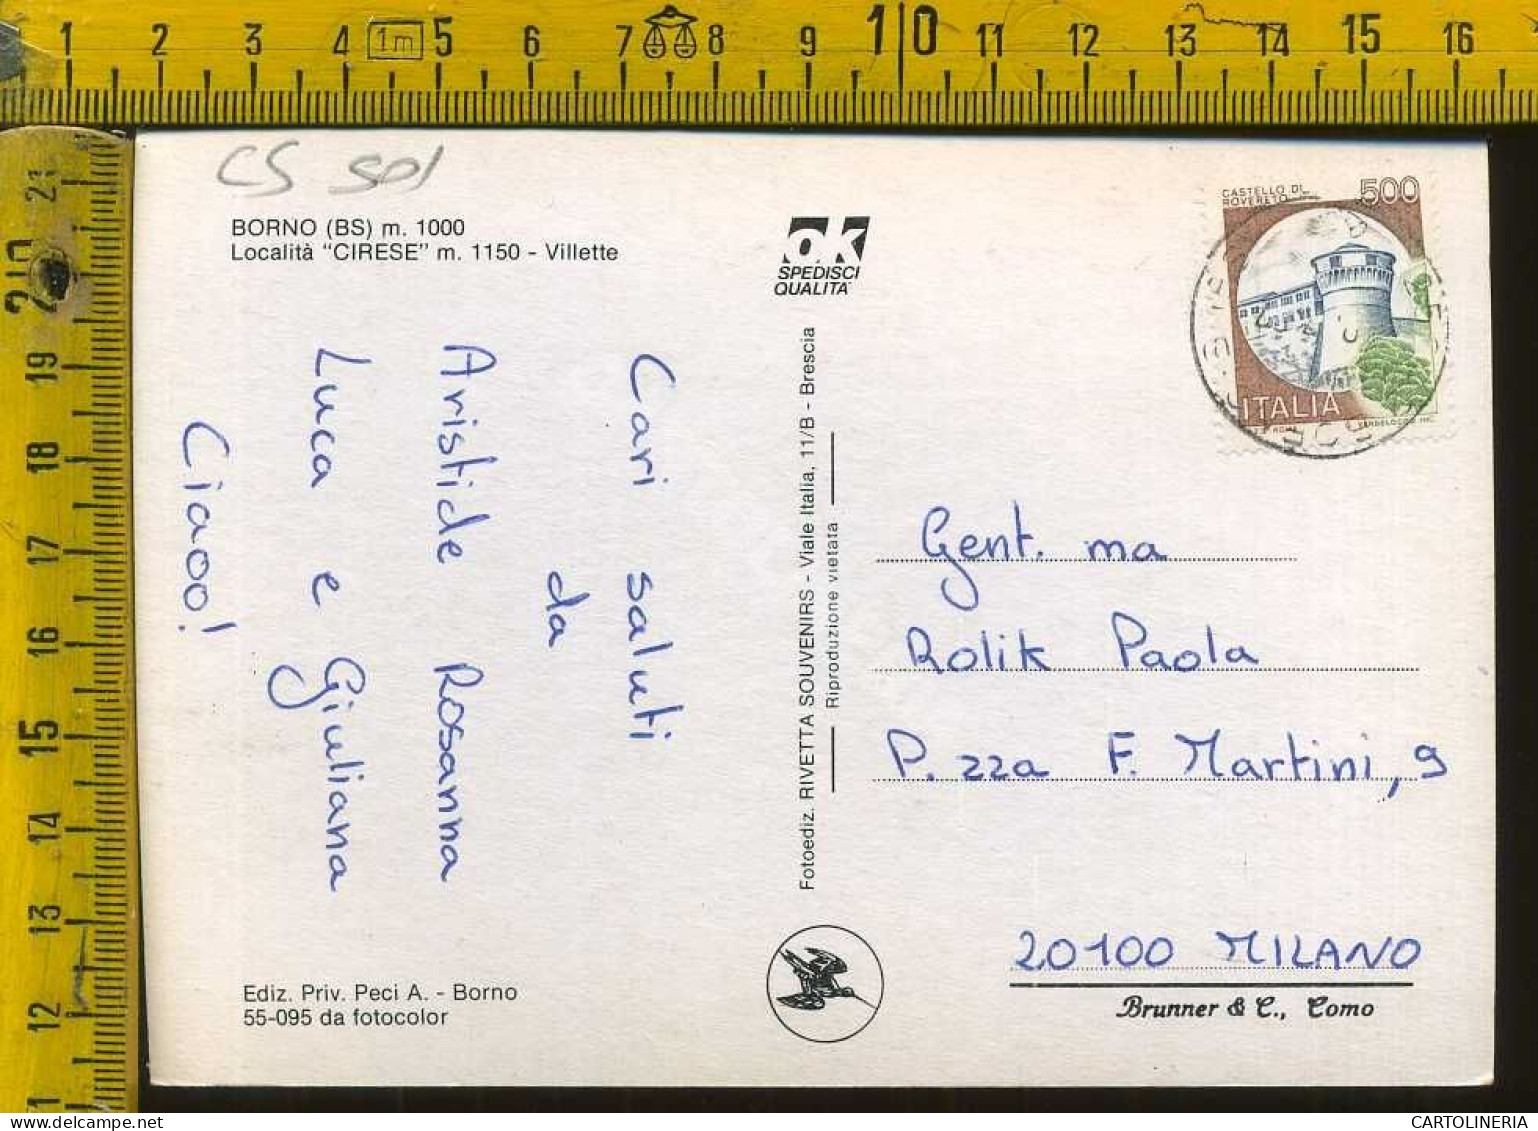 1 2 3 4 1m 5 6 7 8 9 10 11 12 13 14 15 16
21
20
19
18
17
16
15
14
13
12
CS sol
BORNO (BS) m. 1000
Località "CIRESE" m. 1150 - Villette
ok
SPEDISCI
QUALITA'
CASTELLO DI
ROVERETO
500
ITALIA
Cari saluti
da
Aristide Rosanna
Luca e Giuliana
Ciaoo!
Fotoediz. RIVETTA SOUVENIRS - Viale Italia, 11/B - Brescia
Riproduzione vietata
Gent.ma
Rolik Paola
P.zza F. Martini, 9
20100 MILANO
Brunner & C., Como
Ediz. Priv. Peci A. - Borno
55-095 da fotocolor
CARTOLINERIA